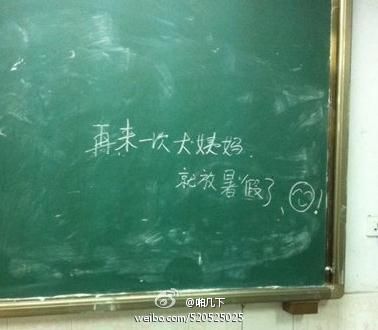 再来一次大姨妈
就放暑假了、!
@咱几下
weibo.com/520525025